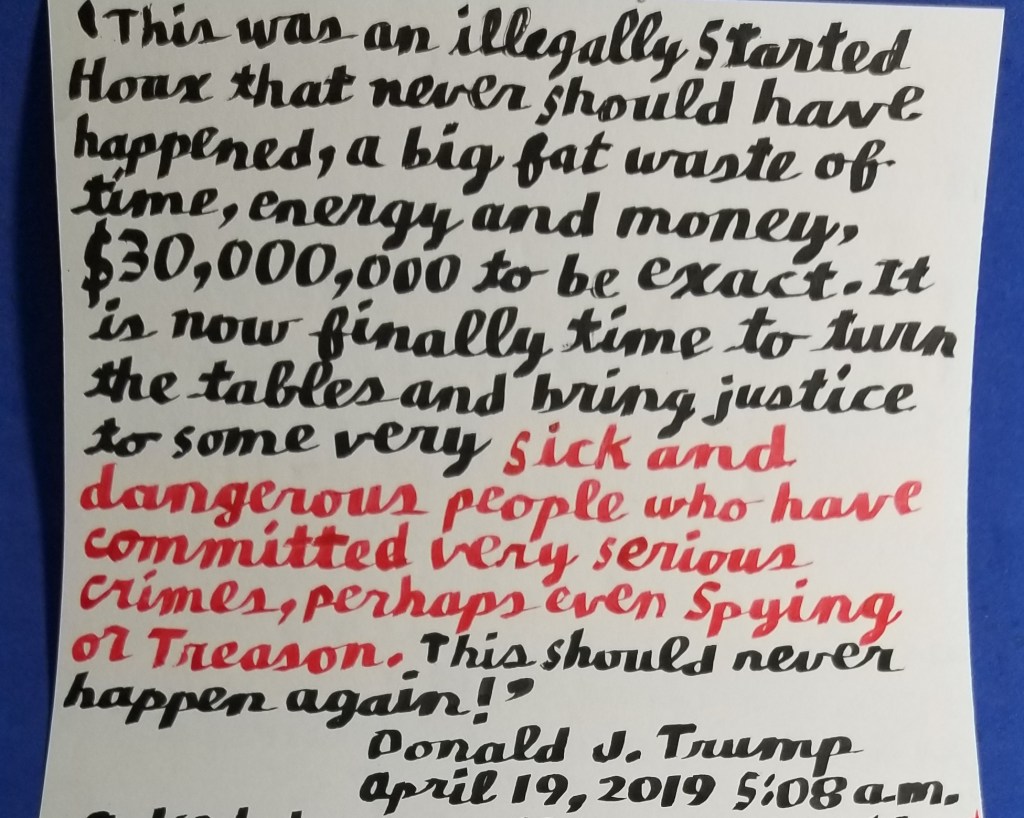 'This was an illegally Started
Hoax that never should have
happened, a big fat waste of
time, energy and money,
$30,000,000 to be exact. It
is now finally time to turn
the tables and bring justice
to some very sick and
dangerous people who have
committed very serious
crimes, perhaps even Spying
or Treason. This should never
happen again!'
Donald J. Trump
April 19, 2019 5:08 a.m.